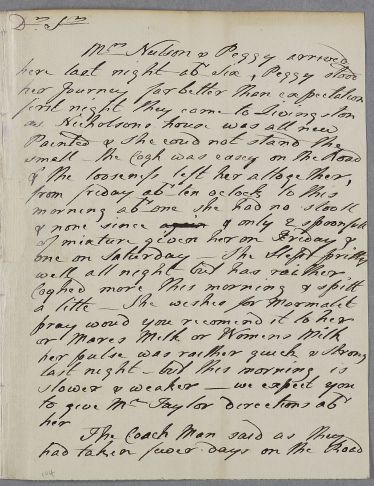 Dr Sir
Mrs Neilson & Peggy arrived
here last night abt Six, Peggy stood
her Journey far better than expectation
first night they came to Livingston
as Nicholsons house was all new
Painted & She coud not stand the
smell the Cogh was easy on the Road
& the loosness left her altogether,
from friday abt ten oclock to this
morning abt one she had no stooll
& none since & only 2 spoonfull
of mixture given her on Friday &
one on Saturday — She Slept prittey
well all night but has raither
Coghed more this morning & spitt
a litte — She wishes for Marmalit
pray woud you recomend it to her
or Mares Milk or Womens Milk
her pulse was raither quick & strong
last night — but this morning is
slower & weaker — we expect you
to give Mr Taylor directions abt
her
The Coach Man said as they
had taken fewer days on the Road
104